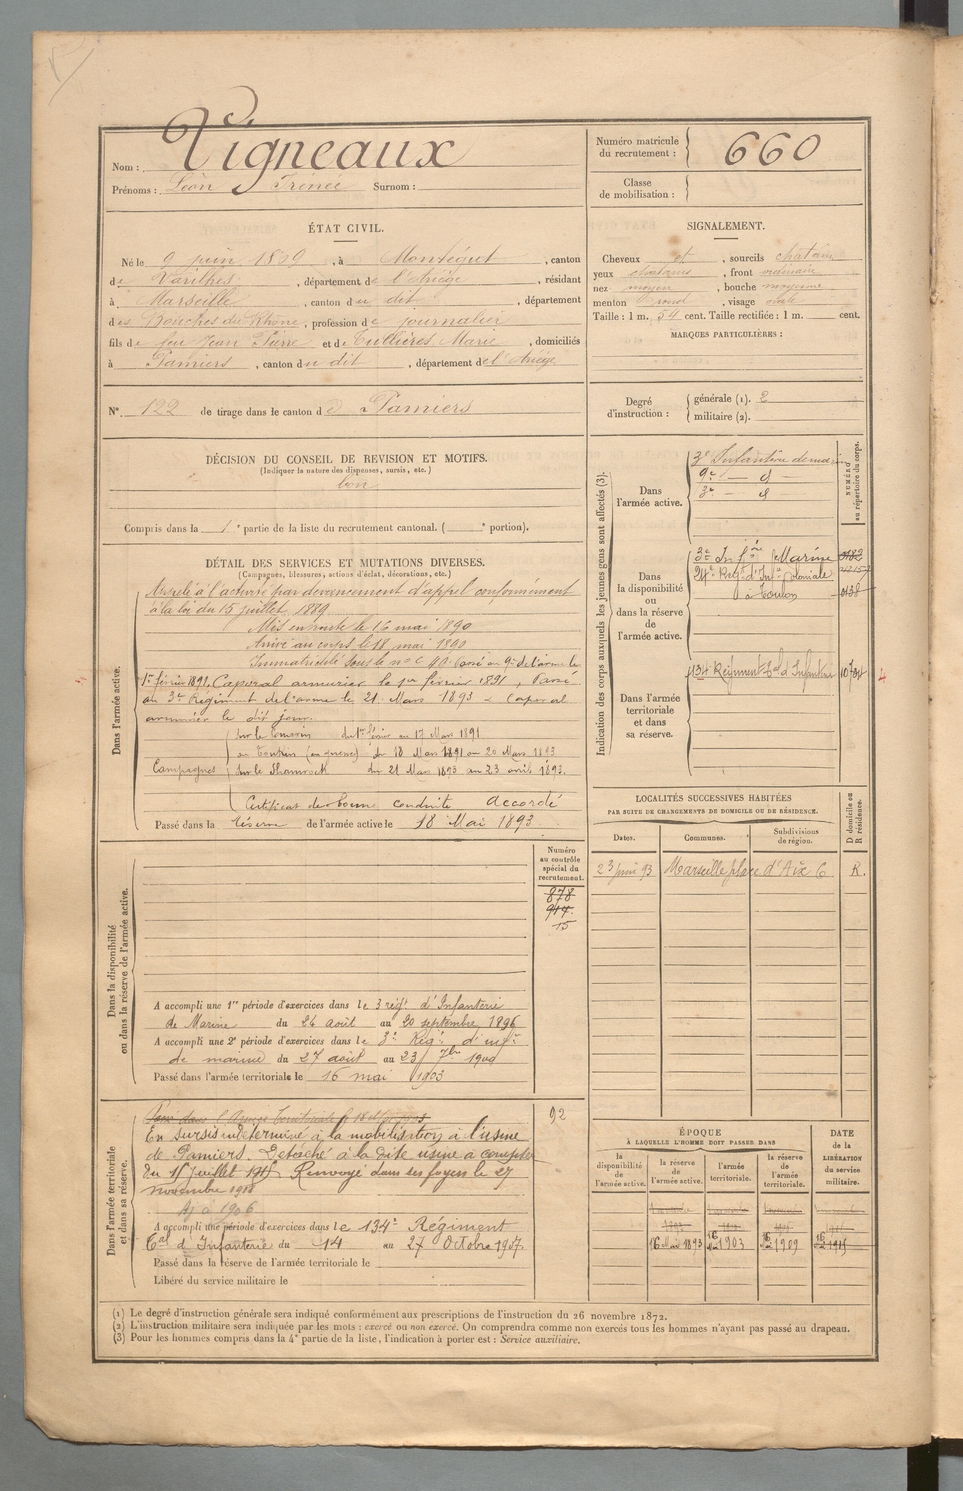 Nom : Vigneaux
Prénoms : Léon Irénée Surnom :
Numéro matricule du recrutement : 660
Classe de mobilisation :
ÉTAT CIVIL.
Né le 9 juin 1869, à Montégut, canton
de Varilhes, département de l'Ariège, résidant
à Marseille, canton du dit, département
des Bouches du Rhône, profession de journalier
fils de feu Jean Pierre et de Tullières Marie, domiciliés
à Pamiers, canton du dit, département de l'Ariège
N° 122 de tirage dans le canton de Pamiers
SIGNALEMENT.
Cheveux et, sourcils chatains
yeux chatains, front ordinaire
nez moyen, bouche moyenne
menton rond, visage ovale
Taille : 1 m. 54 cent. Taille rectifiée : 1 m. cent.
MARQUES PARTICULIÈRES :
Degré d'instruction : générale (1). 2
militaire (2).
DÉCISION DU CONSEIL DE REVISION ET MOTIFS.
(Indiquer la nature des dispenses, sursis, etc.)
bon
Compris dans la 1e partie de la liste du recrutement cantonal. ( e portion).
DÉTAIL DES SERVICES ET MUTATIONS DIVERSES.
(Campagnes, blessures, actions d'éclat, décorations, etc.)
Dans l'armée active.
Appelé à l'activité par devancement d'appel conformément
à la loi du 15 juillet 1889
Mis en route le 16 mai 1890
Arrivé au corps le 18 mai 1890
Immatriculé sous le n° Passé au 9e de l'arme le
1er février 1891. Caporal armurier le 1er février 1891, Passé
au 3e Régiment de l'arme le 21 Mars 1893 Caporal
armurier le dit jour.
Campagnes
Sur le du 1er février au 17 Mars 1891
au Tonkin (en guerre) du 18 Mars 1891 au 20 Mars 1893
Sur le Shamrock du 21 Mars 1893 au 23 avril 1893.
Certificat de Bonne conduite Accordé
Passé dans la réserve de l'armée active le 18 Mai 1893
Indication des corps auxquels les jeunes gens sont affectés (3).
NUMÉRO au répertoire du corps.
Dans l'armée active.
3e Infanterie de marine
9e — d° —
3e — d° —
Dans la disponibilité ou dans la réserve de l'armée active.
3e Infrie de Marine
24e Regt d'Infie Coloniale
à Toulon
Dans l'armée territoriale et dans sa réserve.
134e Régiment Tal d'Infanterie
LOCALITÉS SUCCESSIVES HABITÉES
PAR SUITE DE CHANGEMENTS DE DOMICILE OU DE RÉSIDENCE.
Dates. Communes. Subdivisions de région. D domicile ou R résidence.
23 juin 93 Marseille place d'Aix 6 R.
Dans la disponibilité ou dans la réserve de l'armée active.
Numéro au contrôle spécial du recrutement.
878
914
15
A accompli une 1re période d'exercices dans le 3 régt d'Infanterie
de Marine du 24 août au 20 septembre 1896
A accompli une 2e période d'exercices dans le 3e Régt d'infie
de marine du 27 août au 23 7bre 1900
Passé dans l'armée territoriale le 16 mai 1903
Dans l'armée territoriale et dans sa réserve.
92
Passé dans l'Armée territoriale le
En sursis indéterminé à la mobilisation à l'usine
de Pamiers. Détaché à la dite usine à compter
du 1er juillet 1917. Renvoyé dans ses foyers le 27
novembre 1918
Aj à 1906
A accompli une période d'exercices dans le 134e Régiment
Tal d'Infanterie du 14 au 27 Octobre 1907
Passé dans la réserve de l'armée territoriale le
Libéré du service militaire le
ÉPOQUE
À LAQUELLE L'HOMME DOIT PASSER DANS
la disponibilité de l'armée active. la réserve de l'armée active. l'armée territoriale. la réserve de l'armée territoriale.
DATE de la LIBÉRATION du service militaire.
16 Mai 1893 16 Mai 1903 16 Mai 1909 16 Mai 1915
(1) Le degré d'instruction générale sera indiqué conformément aux prescriptions de l'instruction du 26 novembre 1872.
(2) L'instruction militaire sera indiquée par les mots : exercé ou non exercé. On comprendra comme non exercés tous les hommes n'ayant pas passé au drapeau.
(3) Pour les hommes compris dans la 4e partie de la liste, l'indication à porter est : Service auxiliaire.